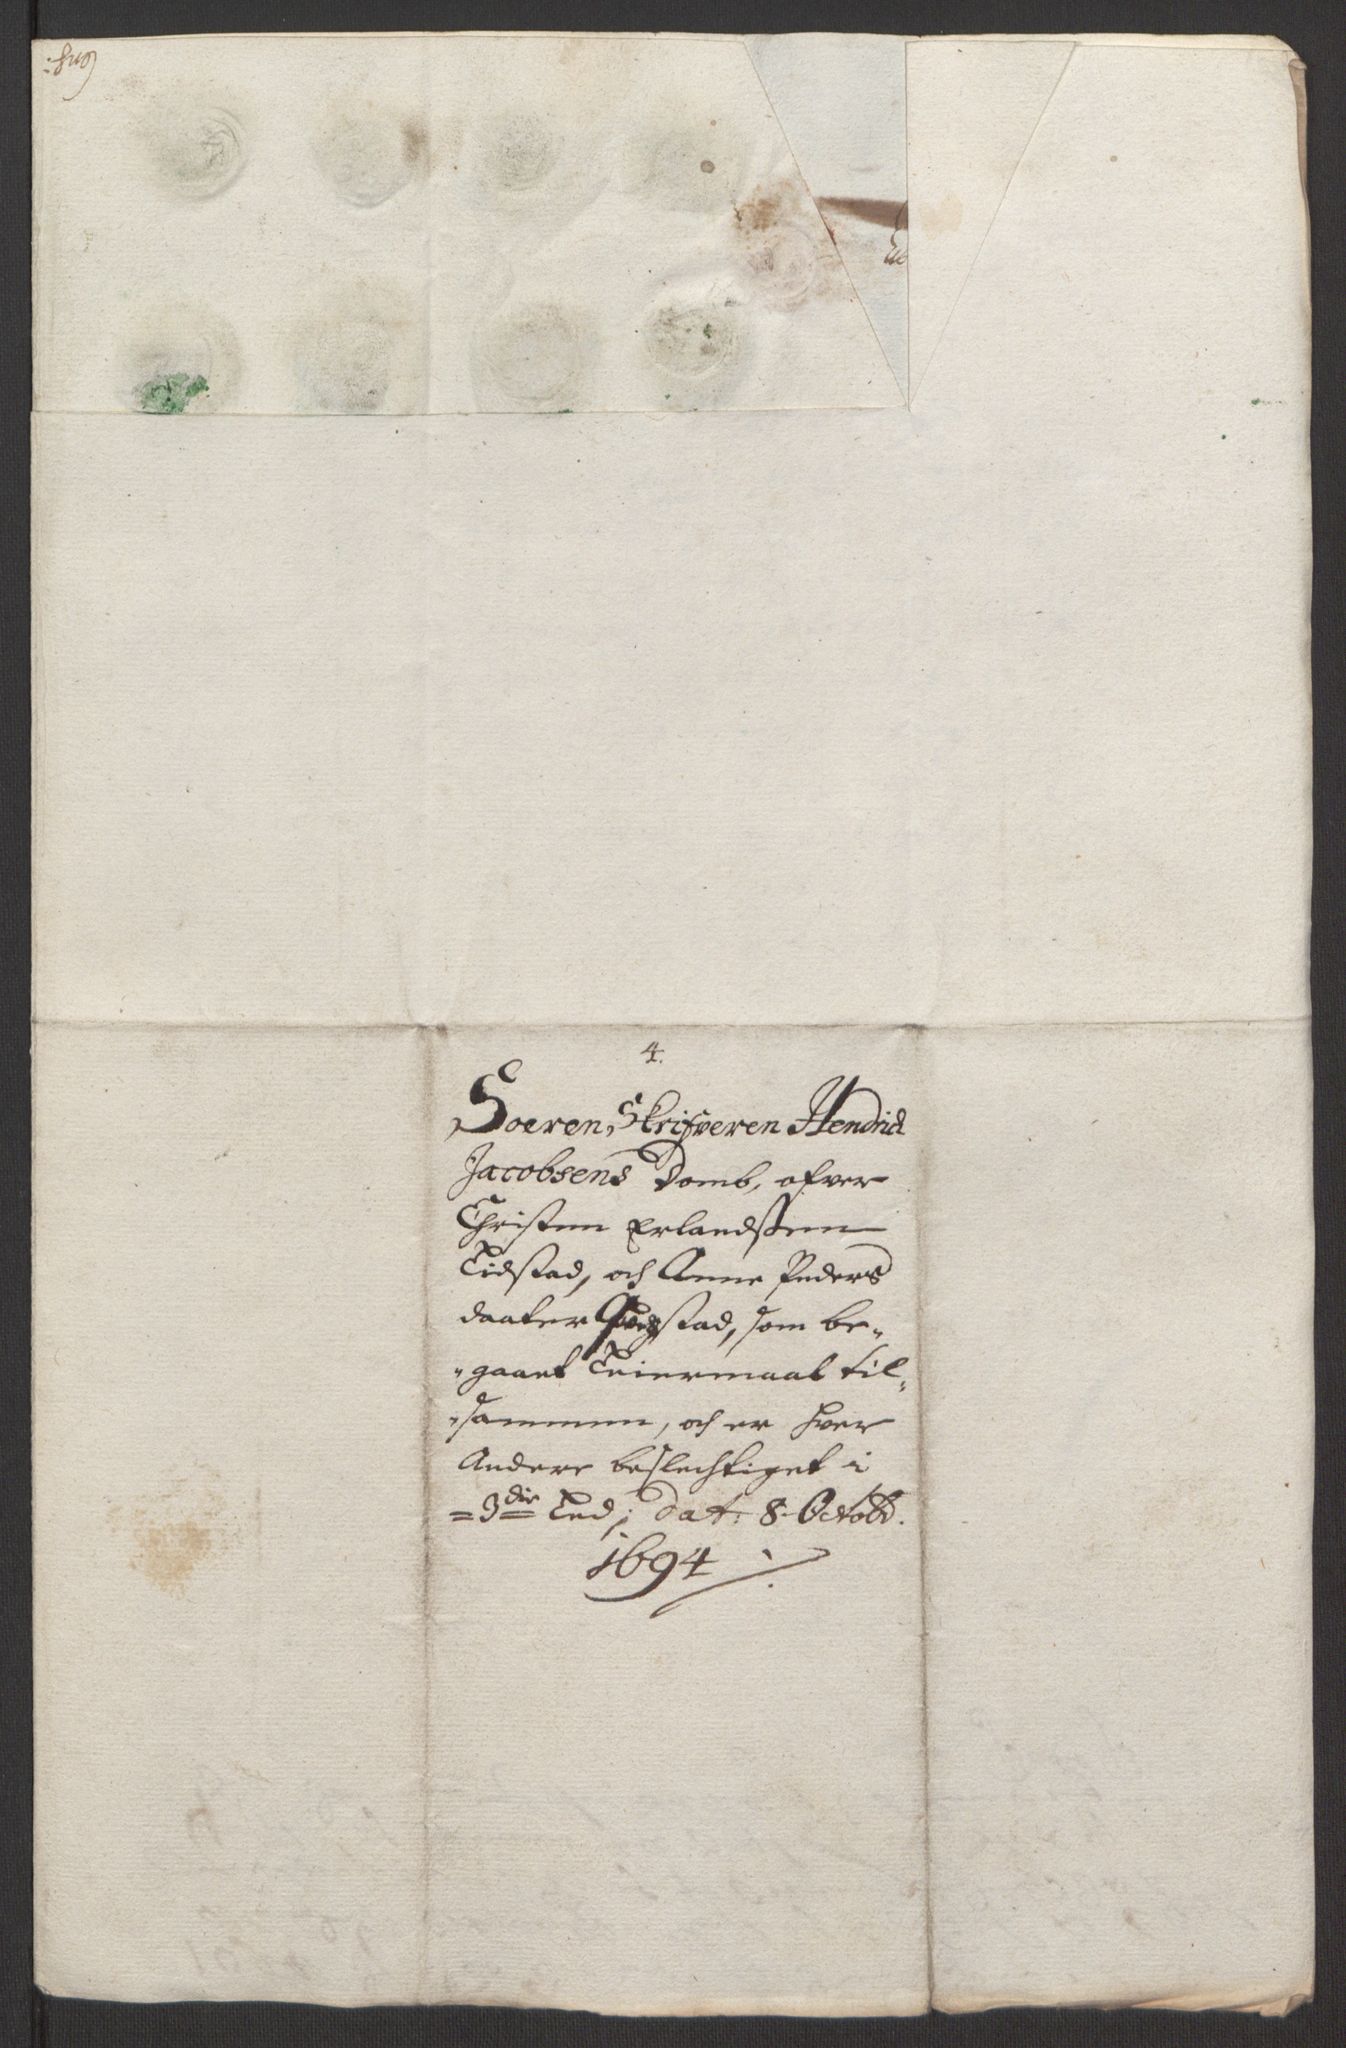 4.
Soeren Skrifveren Hendrich
Jacobsens Domb, ofver
Christen Erlandssen
Tidstad, och Anne Peders
daater stad, som be„
„gaaet Leiermaal til„
„sammen, och er hver
Andere beslechtiget i
=3die Led; Dat: 8 Octobr.
1694